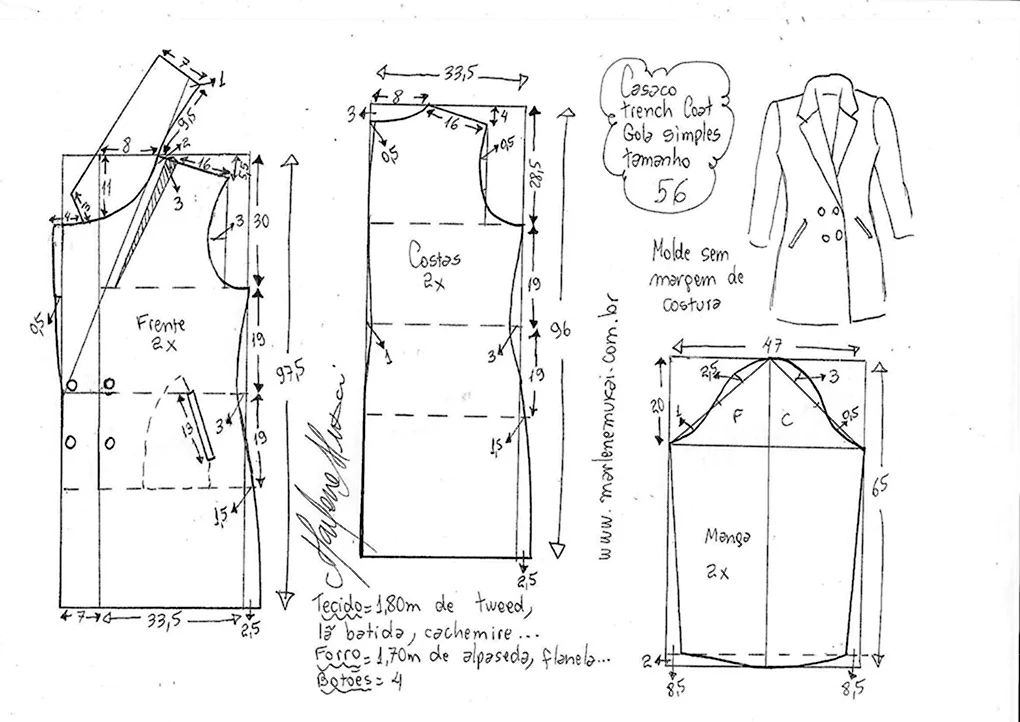 7
1
9,5
8
2
16
5,5
11
3
13
4
3
30
0,5
Frente
2x
19
97,5
13
3
19
1,5
7
33,5
2,5
33,5
8
3
4
16
0,5
0,5
28,5
Costas
2x
19
96
1
3
19
1,5
2,5
Casaco
trench Coat
Gola simples
tamanho
56
Molde sem
margem de
costura
www.marlenemukai.com.br
47
2,5
3
20
1
F
C
0,5
65
Manga
2x
2
8,5
8,5
Tecido=1,80m de tweed,
lã batida, cachemire...
Forro=1,70m de alpaseda, flanela...
Botões= 4